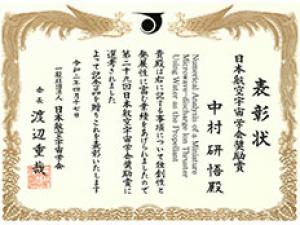 表彰状
日本航空宇宙学会奨励賞
中村研悟殿
Numerical Analysis of a Miniature
Microwave-discharge Ion Thruster
Using Water as the Propellant
貴殿は右に記する事項について独創性と
発展性に富む業績をあげられましたので
第二十九回日本航空宇宙学会奨励賞に
選考されました
よって記念品を贈りこれを表彰いたします
令和二年四月十七日
一般社団法人 日本航空宇宙学会
会長 渡辺重哉